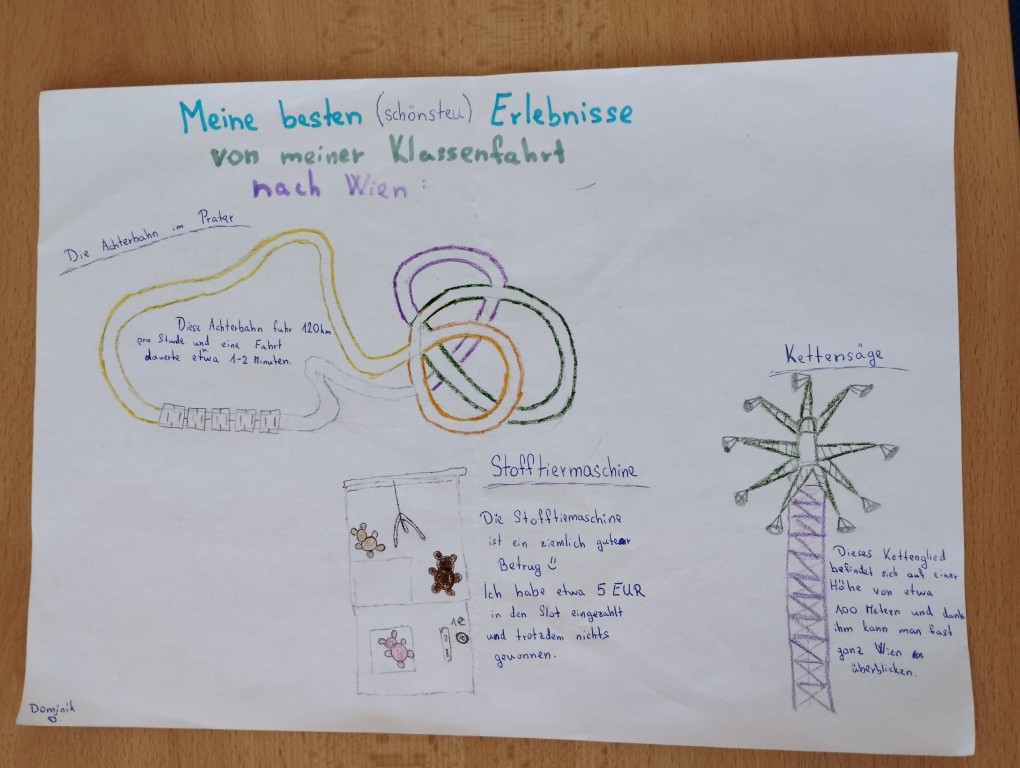 Meine besten (schönsten) Erlebnisse
von meiner Klassenfahrt
nach Wien:
Die Achterbahn im Prater
Diese Achterbahn fuhr 120km
pro Stude und eine Fahrt
dauerte etwa 1-2 Minuten.
Stofftiermaschine
Die Stofftiemaschine
ist ein ziemlich guter
Betrug
Ich habe etwa 5 EUR
in den Slot eingezahlt
und trotzdem nichts
gewonnen.
1€
Kettensäge
Dieses Kettenglied
befindet sich auf einer
Höhe von etwa
100 Metern und dank
ihm kann man fast
ganz Wien
überblicken.
Dominik